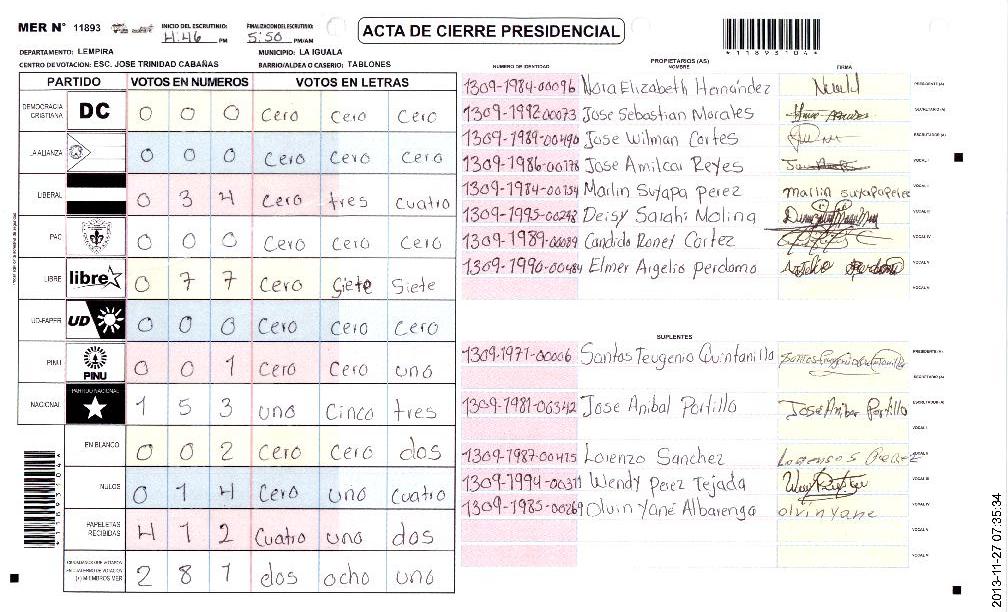 MER N° 11893 INICIO DEL ESCRUTINIO: FINALIZACION DEL ESCRUTINIO:
4:46 PM 5:50 PM/AM
ACTA DE CIERRE PRESIDENCIAL
*11893104*
DEPARTAMENTO: LEMPIRA MUNICIPIO: LA IGUALA
CENTRO DE VOTACION: ESC. JOSE TRINIDAD CABAÑAS BARRIO/ALDEA O CASERIO: TABLONES
PARTIDO VOTOS EN NUMEROS VOTOS EN LETRAS
DEMOCRACIA CRISTIANA DC 0 0 0 Cero Cero Cero
LA ALIANZA 0 0 0 Cero Cero Cero
LIBERAL 0 3 4 Cero tres cuatro
PAC 0 0 0 Cero Cero Cero
LIBRE libre 0 7 7 Cero Siete Siete
UD-FAPER UD 0 0 0 Cero Cero Cero
PINU PINU 0 0 1 Cero Cero uno
NACIONAL PARTIDO NACIONAL 1 5 3 uno Cinco tres
EN BLANCO 0 0 2 Cero Cero dos
NULOS 0 1 4 Cero uno cuatro
PAPELETAS RECIBIDAS 4 1 2 Cuatro uno dos
CIUDADANOS QUE VOTARON EN CUADERNO DE VOTACION (+) MIEMBROS MER 2 8 1 dos ocho uno
*11893104*
PROPIETARIOS (AS)
NUMERO DE IDENTIDAD NOMBRE FIRMA
1309-1984-00096 Nora Elizabeth Hernández PRESIDENTE (A)
1309-1992-00073 Jose Sebastian Morales SECRETARIO (A)
1309-1989-00490 Jose Wilman Cortes ESCRUTADOR (A)
1309-1986-00178 Jose Amilcar Reyes VOCAL I
1309-1984-00154 Marlin Suyapa Perez marlin suyapa perez VOCAL II
1309-1995-00248 Deisy Sarahi Molina VOCAL III
1309-1989-00089 Candido Roney Cortez VOCAL IV
1309-1990-00484 Elmer Argelio Perdomo VOCAL V
SUPLENTES
1309-1971-00006 Santos Teugenio Quintanilla PRESIDENTE (A)
SECRETARIO (A)
1309-1981-00342 Jose Anibal Portillo José Anibar Portillo ESCRUTADOR (A)
VOCAL I
1309-1987-00475 Lorenzo Sanchez VOCAL II
1309-1994-00371 Wendy Perez Tejada VOCAL III
1309-1985-00269 Olvin Yané Albarenga olvin yane VOCAL IV
VOCAL V
2013-11-27 07:35:34